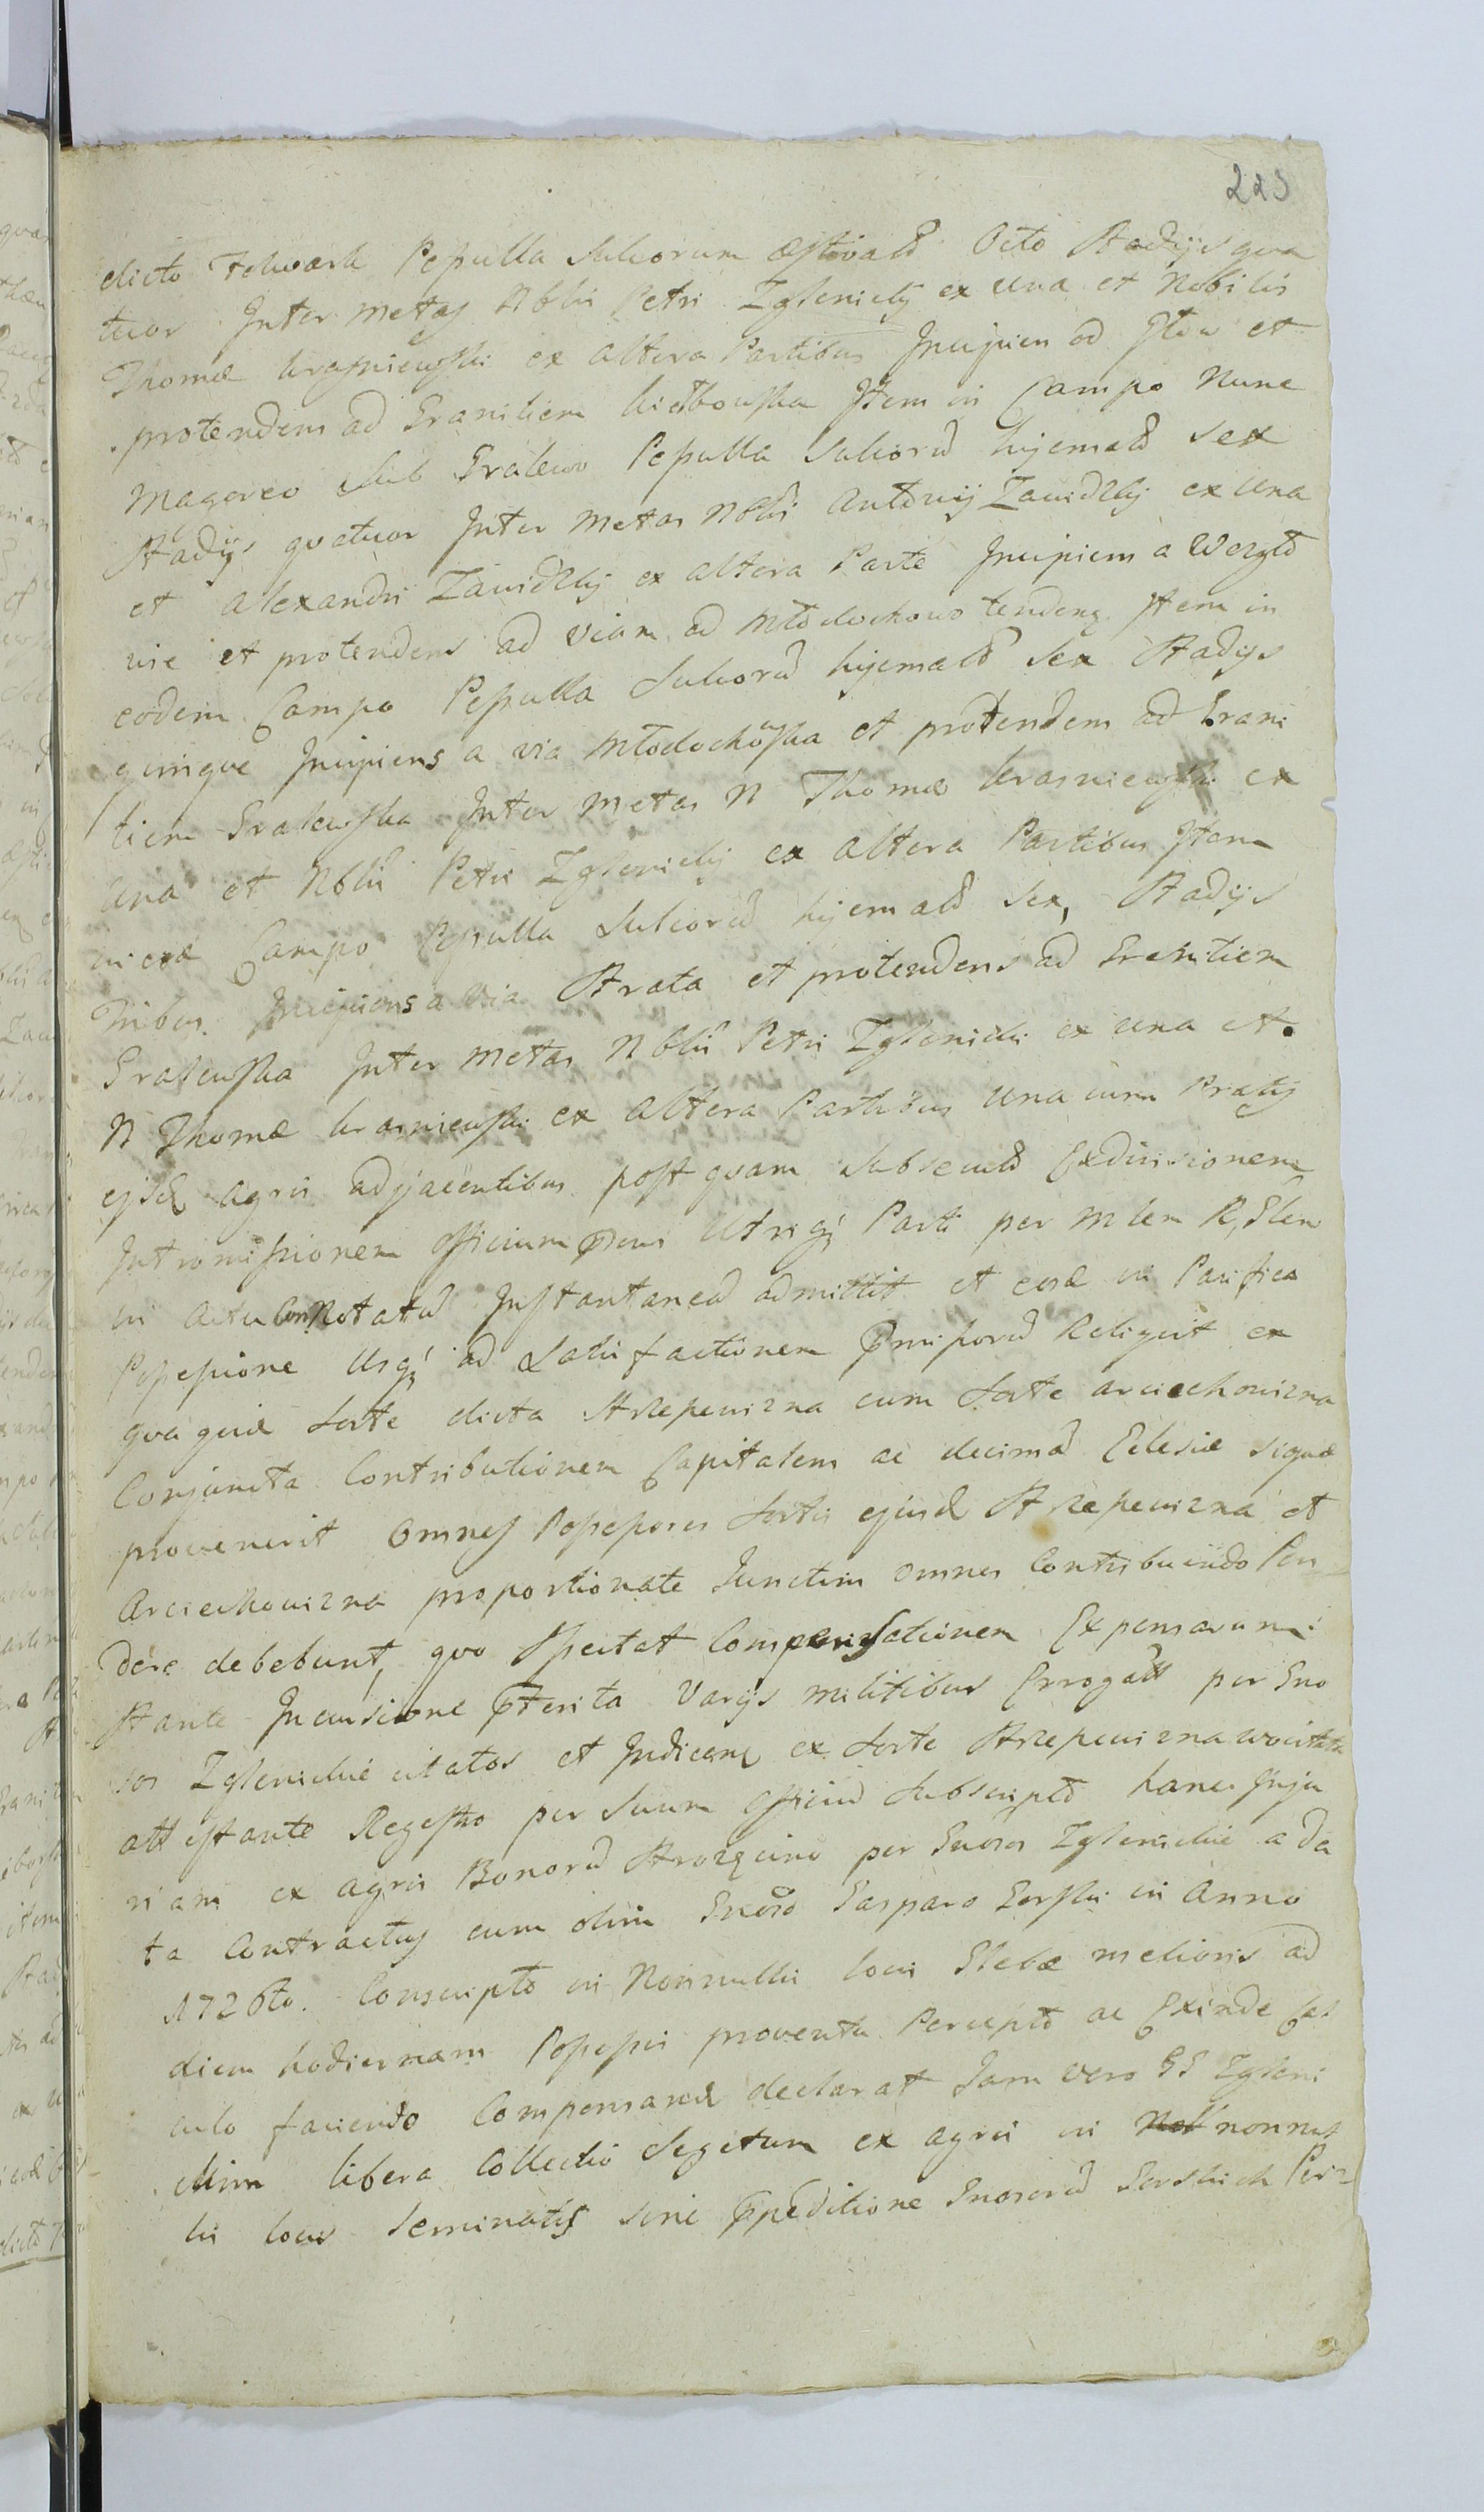 223
dicto Folwark Pepulla Sulcorum æstivald Octo Stadijs qva
tuor Inter metas Nblis Petri Zglenicky ex una et Nobilis
Thomæ Krasniewski ex altera Partibus Incipien ad et
protendens ad Granitiem Item in Campo Nunc
Magorvo sub Gralewo Pepulla Sulcorū hijemald sex
Stadijs qvatuor Inter metas Nblis Antonij Zawidzkij ex una
et Alexandri Zawidzkij ex altera Parte Incipiens a
vie et protendens ad viam ad Młodochowo tendenꝗ Item in
eodem Campo Pepulla Sulcorū hijemald sex Stadijs
qvinqve Incipiens a via Młodochoska et protendens ad Grani
tiem Gralewska Inter metas N Thomæ Krasniewski ex
una et Nblis Petri Zglenicky ex altera Partibus Item
in eod Campo Pepulla Sulcorū hijemald sex, Stadijs
Tribus. Incipiens a via Strata et protendens ad Granitiem
Gralewska Inter metas Nblis Petri Zglenicki ex una et
N Thomæ Krasniewski ex altera Partibus una cum Pratis
ejsd agris adjacentibus post qvam subsecutā Exdivisionem
Intromissionem officium Utriqꝫ Parti per Mlem R, Glen
in actu connotatā Instantaneā admittit et eosd in Pacifica
Possessione usqꝫ ad satisfactionem Reliqvit ex
qva qvid Sorte dicta Strzepewizna cum Sorte Arciechowizna
Conjuncta Contributionem Capitalem ac decimā Eclesiæ siqvæ
provenerit Omnes Possessores Sortis ejusd Strzepewizna et
Arciechowizna proportionate Junctim omnes Contribuendo Pen
dere debebunt, qvo Spectat Compensationem Expensarum
Stante Incursione Varijs militibus Errogatt per Gno
sos Zglenickie citatos et Judicand ex Sorte Strzepewizna
attestante Regestro per Suum officiū Subscriptō hanc Inju
riam ex agris Bonorū per Gnosos Zglenickie a da
ta Contractus cum olim Gnoso Gasparo Gorski in Anno
1726to. Conscripto in Nonnullis locis Glebæ melioris ad
diem hodiernam Possessis proventu Perceptō ac Exinde Cal
culo faciendo Compensand declarat Jam vero GG Zgleni
ckim libera Collectio Segetum ex agris in nonnul
lis locis Seminatis sine Gnosorū Gorskich Per=